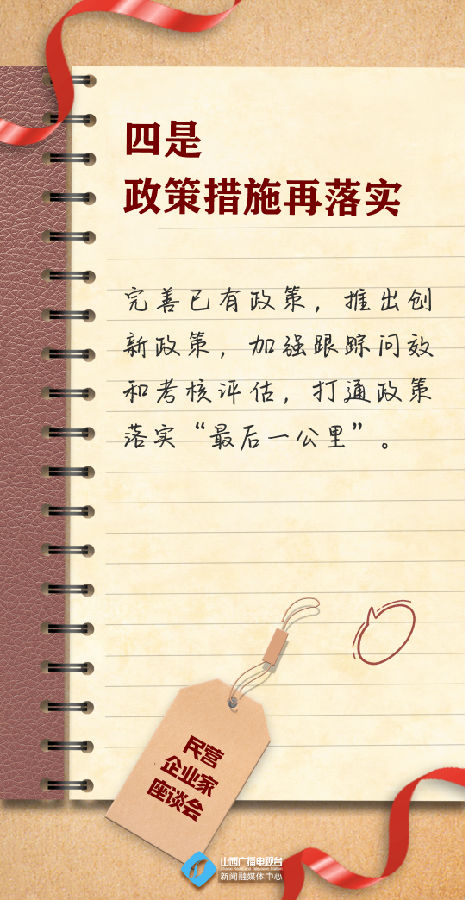 四是
政策措施再落实
完善已有政策，推出创
新政策，加强跟踪问效
和考核评估，打通政策
落实“最后一公里”。
民营
企业家
座谈会
山西广播电视台
新闻融媒体中心